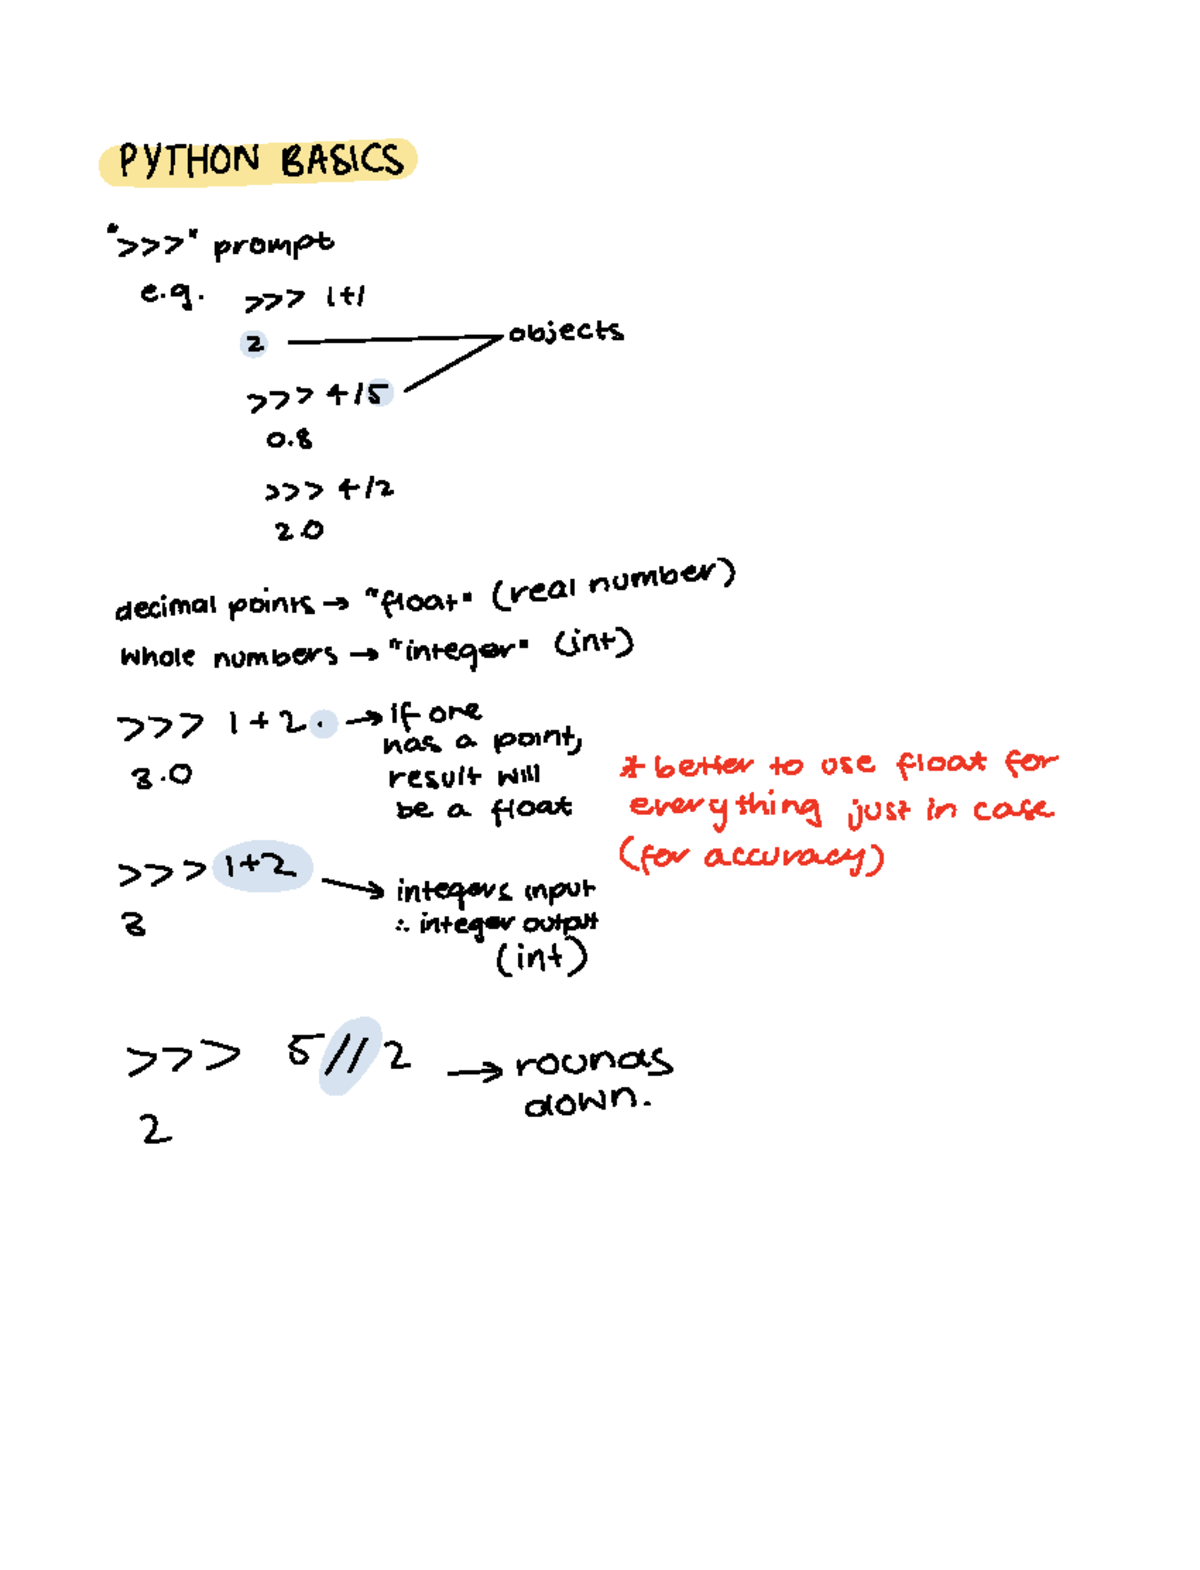 PYTHON BASICS
">>>" prompt
e.g. >>> 1+1
2 objects
>>> 4/5
0.8
>>> 4/2
2.0
decimal points → "float" (real number)
whole numbers → "integer" (int)
>>> 1+2. → if one
has a point,
3.0 result will
be a float
* better to use float for
everything just in case
(for accuracy)
>>> 1+2 → integers input
3 ∴ integer output
(int)
>>> 5//2 → rounds
down.
2